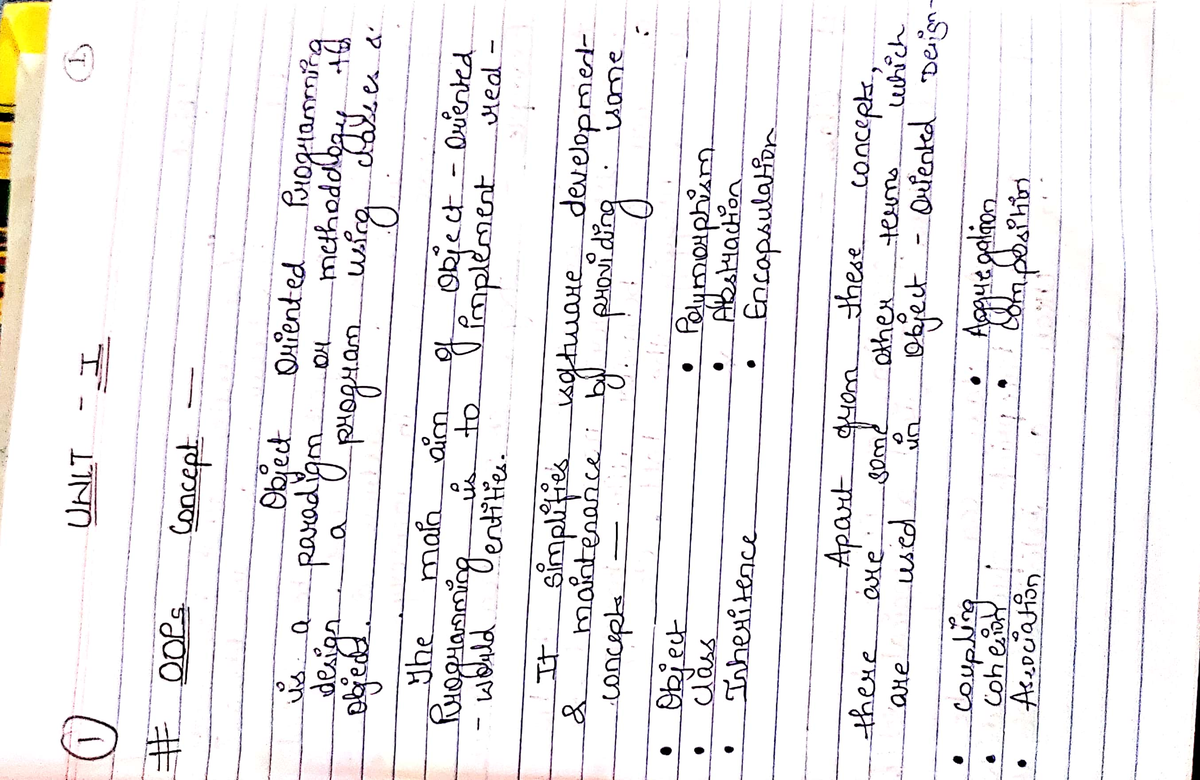 1 UNIT - I 1
# OOPs Concept —
Object Oriented Programming
is a paradigm or methodology to
design a program using classes &
objects.
The main aim of Object - Oriented
Programming is to implement real -
- world entities.
IT simplifies software development
& maintenance by providing some
concepts — :
• Object • Polymorphism
• class • Abstraction
• Inheritence • Encapsulation
Apart from these concepts,
there are some other terms which
are used in Object - Oriented Design -
• coupling • Aggregation
• cohesion • Composition
• Association